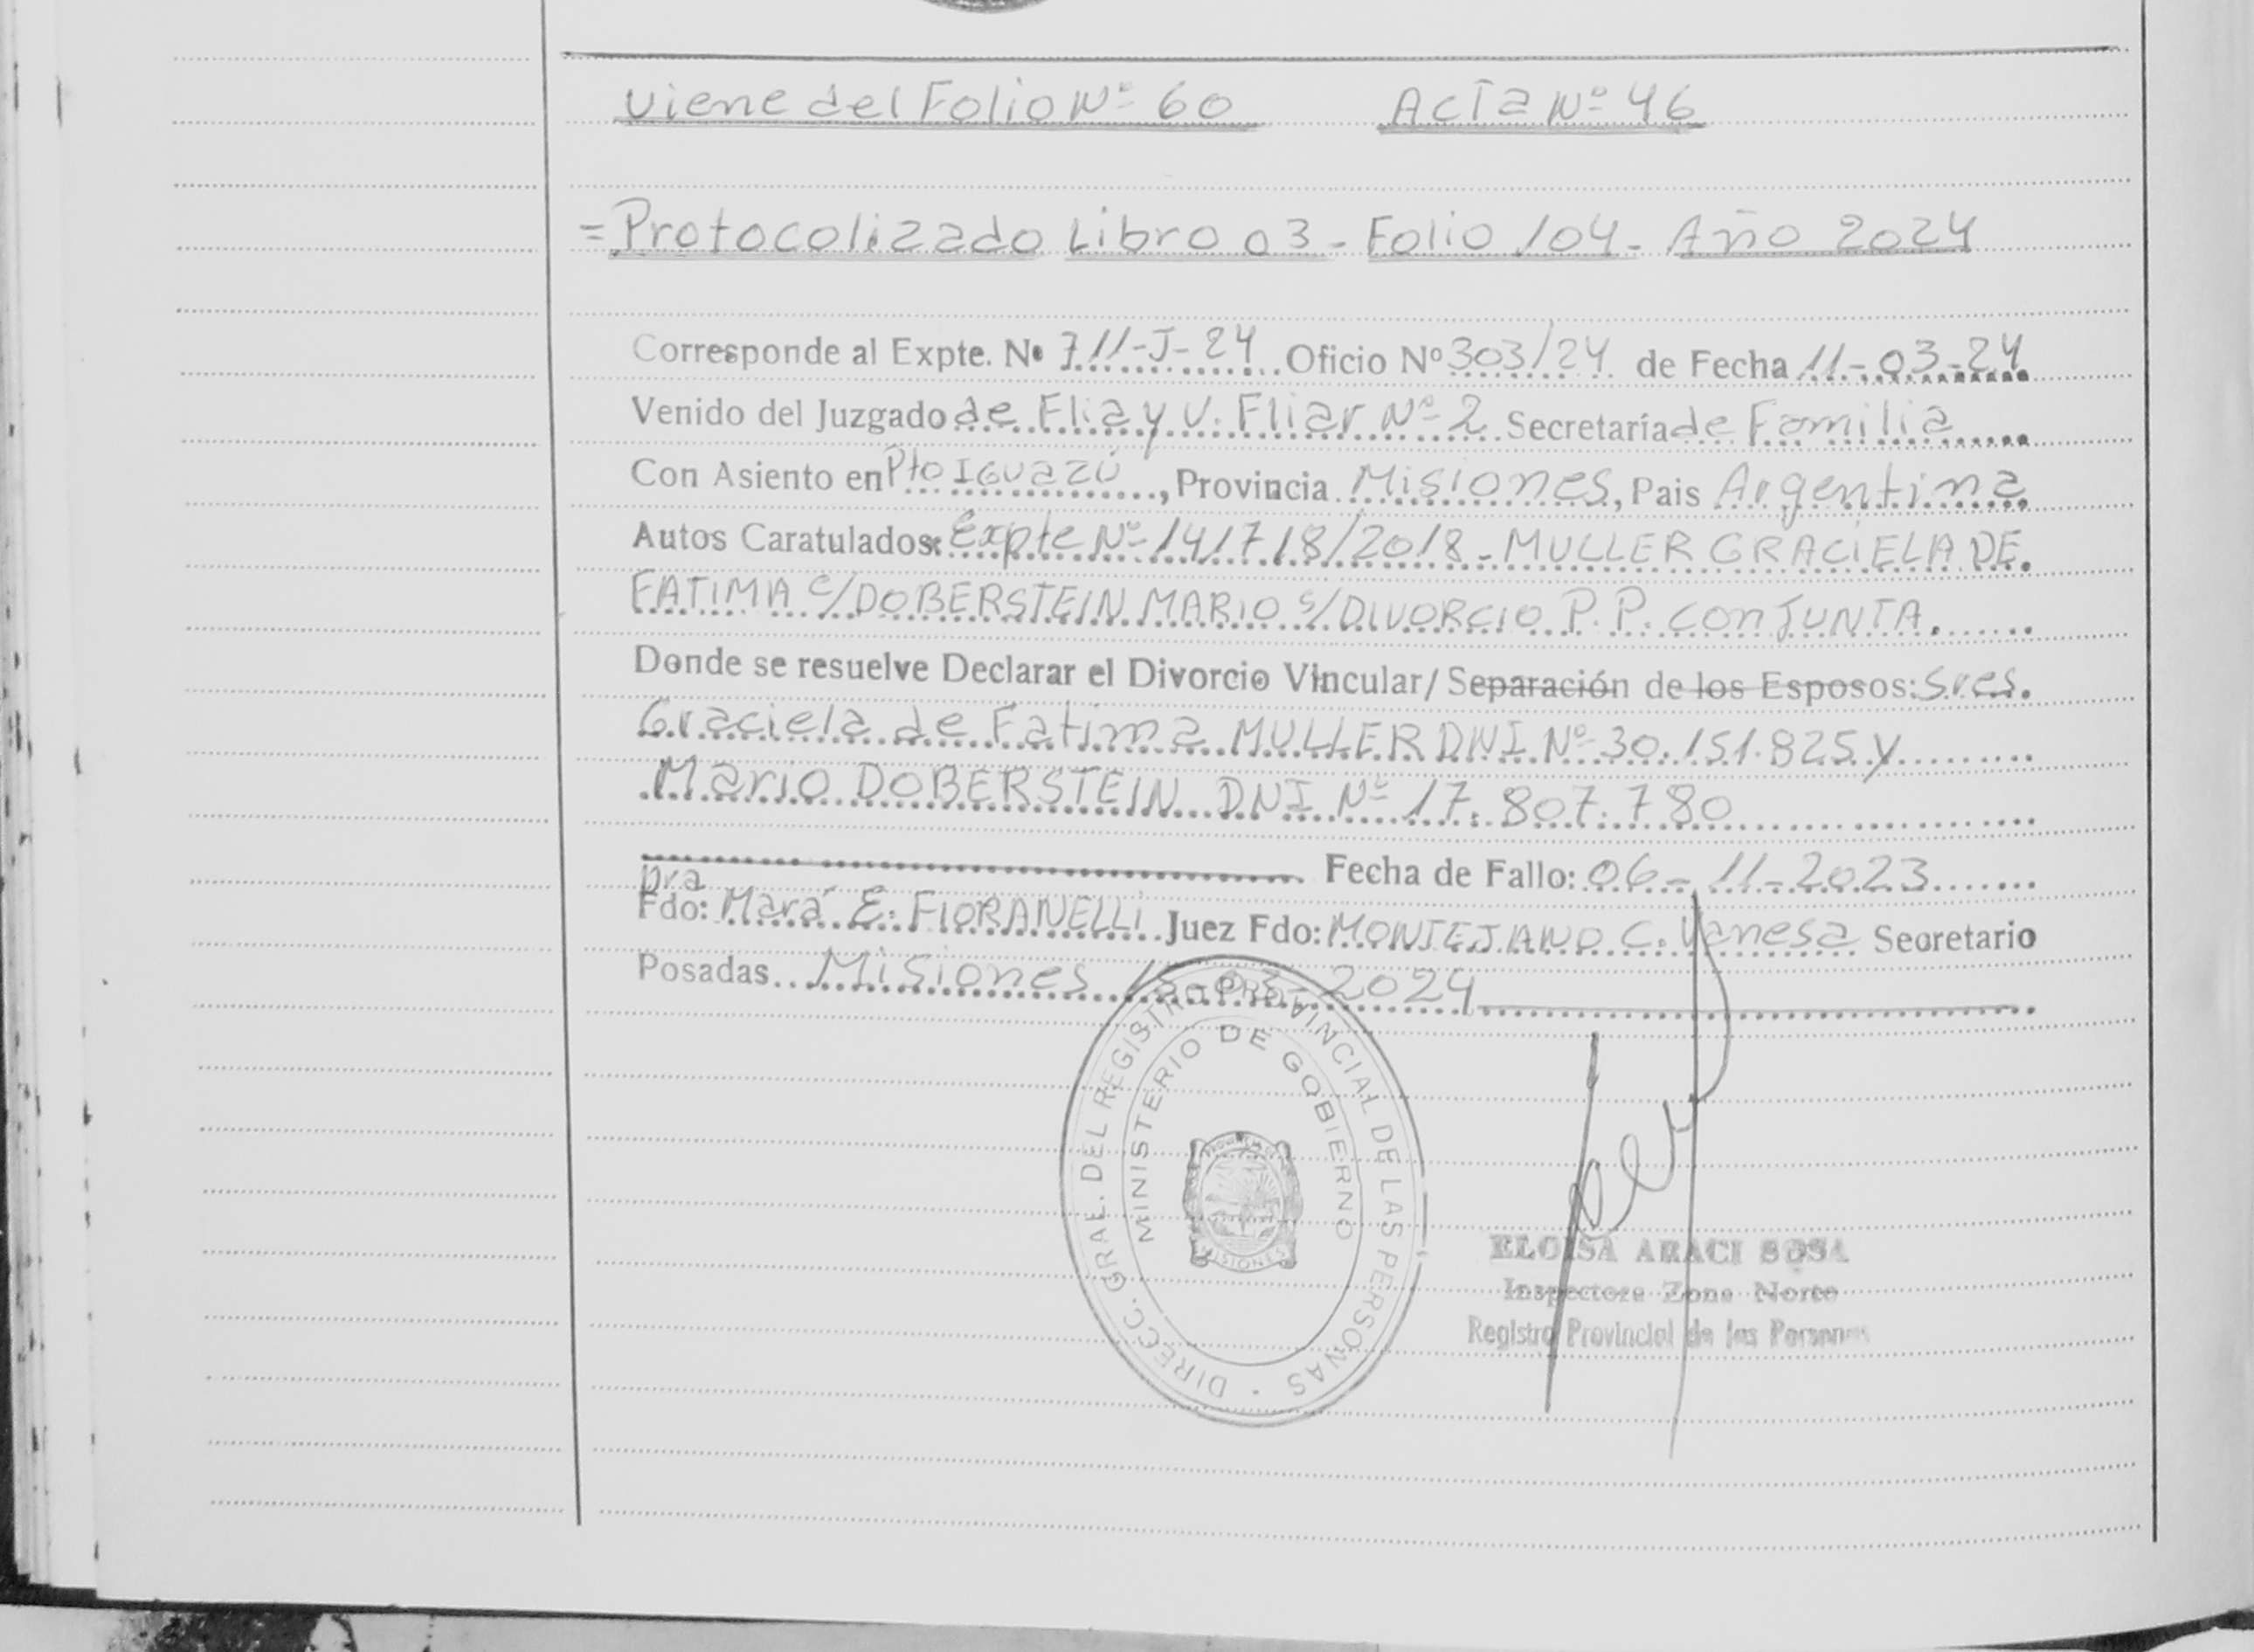 Viene del Folio Nº 60 Acta Nº 46
= Protocolizado Libro 03 - Folio 104 - Año 2024
Corresponde al Expte. Nº 711-J-24 Oficio Nº 303/24 de Fecha 11-03-24
Venido del Juzgado de Flia y V. Fliar Nº 2 Secretaría de Familia
Con Asiento en Pto Iguazú, Provincia Misiones, Pais Argentina
Autos Caratulados: Expte Nº 141718/2018 - MULLER GRACIELA DE
FATIMA C/ DOBERSTEIN MARIO S/ DIVORCIO P.P. conJUNTA.
Donde se resuelve Declarar el Divorcio Vincular/ Separación de los Esposos: Sres.
Graciela de Fatima MULLER DNI Nº 30.151.825 y
Mario DOBERSTEIN DNI Nº 17.807.780
Fecha de Fallo: 06-11-2023
Dra
Fdo: Mará E. FIORANELLI Juez Fdo: MONTEJANO C. Vanesa Secretario
Posadas. Misiones 15-03-2024
DIRECC. GRAL. DEL REGISTRO PROVINCIAL DE LAS PERSONAS
MINISTERIO DE GOBIERNO
PROVINCIA DE
MISIONES
ELOISA ARACI SOSA
Inspectora Zona Norte
Registro Provincial de las Personas